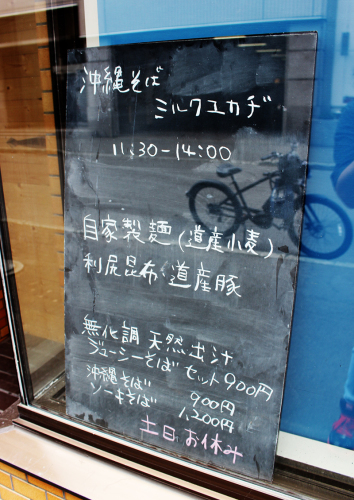 沖縄そば
ミルクユカヂ
11:30-14:00
自家製麺(道産小麦)
利尻昆布・道産豚
無化調 天然出汁
ジューシーそばセット900円
沖縄そば 900円
ソーキそば 1,200円
土日お休み